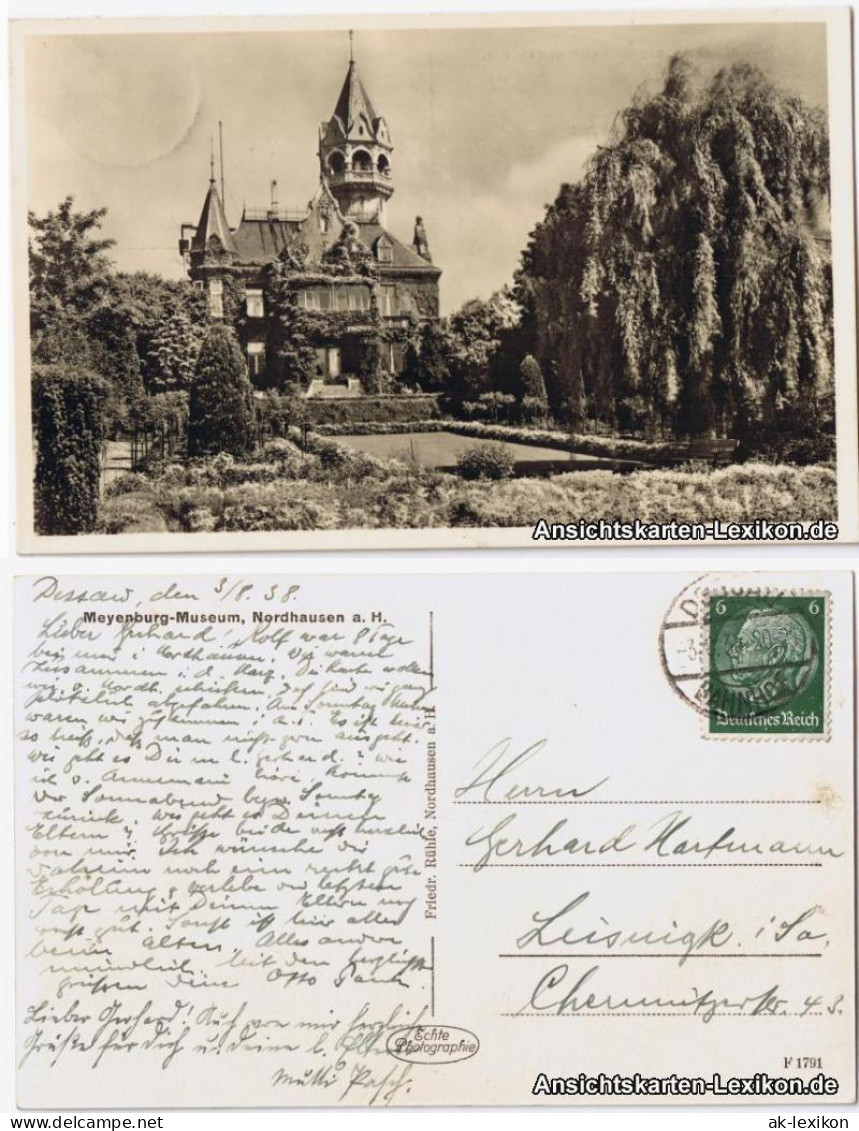 Ansichtskarten-Lexikon.de
Dessau, den 3/8. 38.
Meyenburg-Museum, Nordhausen a. H.
Lieber Gerhard! Rolf war 8 Tage
bei mir i Nordhausen. Wir waren
zusammen i. d. Harz. Die Karte wollten
wir v. Nordh. schicken.
plötzlich abgefahren. Am Sonntag
waren wir zusammen Es ist hier
so heiß, daß man nicht gern ausgeht.
Wie geht es Dir m. l. Gerhard. ? wie
ich v. Annemarie höre, kommst
Du Sonnabend bezw. Sonntag
zurück. Wie geht es Deinen
Eltern ? Grüße beide recht herzlich
von mir. Ich wünsche dir
daheim noch eine recht gute
Erholung u verlebe die letzten
Tage mit Deinen Eltern noch
recht gut. Sonst ist hier alles
beim alten. Alles andere
mündlich. Mit den herzlichsten
Grüßen Dein Otto
Lieber Gerhard! Auch von mir herzlich
Grüße für Dich u. Deine l. Eltern
Mutti Pasch.
Friedr. Rühle, Nordhausen a. H.
Echte
Photographie
6 6
Deutsches Reich
BAHNHOF
Herrn
Gerhard Hartmann
Leisnigk. i/Sa,
Chemnitzerstr. 43.
F 1791
Ansichtskarten-Lexikon.de
ak-lexikon